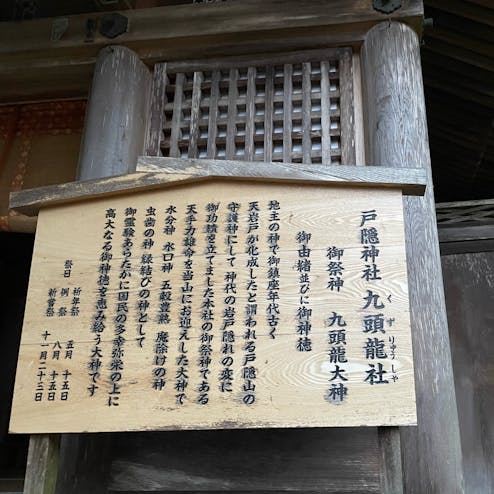 戸隠神社 九頭龍社
くずりゅうしゃ
御祭神 九頭龍大神
御由緒並びに御神徳
地主の神で御鎮座年代古く
天岩戸が化成したと謂われる戸隠山の
守護神にして 神代の岩戸隠れの変に
御功績を立てました本社の御祭神である
天手力雄命を当山にお迎えした大神で
水分神 水口神 五穀豊熟 魔除けの神
虫歯の神 縁結びの神として
御霊験あらたかに国民の多幸弥栄の上に
高大なる御神徳を恵み給う大神です
祭日 祈年祭 五月十五日
例祭 八月十五日
新嘗祭 十一月二十三日